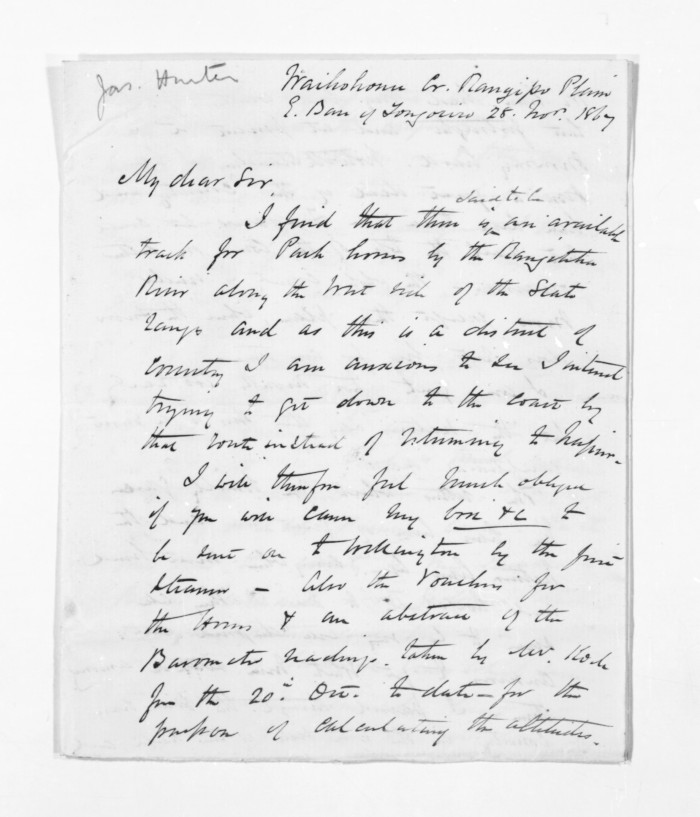 Jas. Hector
Waikohonu Cr. Rangipo Plain
E. Base of Tongariro 28. Nov. 1867
My dear Sir,
said to be
I find that there is an available
track for Pack horses by the Rangitikei
River along the West side of the Slate
range and as this is a district of
Country I am anxious to see I intend
trying to get down to the coast by
that route instead of returning to Napier.
I will therefore feel much obliged
if you will cause my box &c to
be sent on to Wellington by the first
steamer – Also the Vouchers for
the horses & an abstract of the
Barometer readings taken by Mr. Koch
from the 20th to date – for the
purpose of calculating the altitudes.